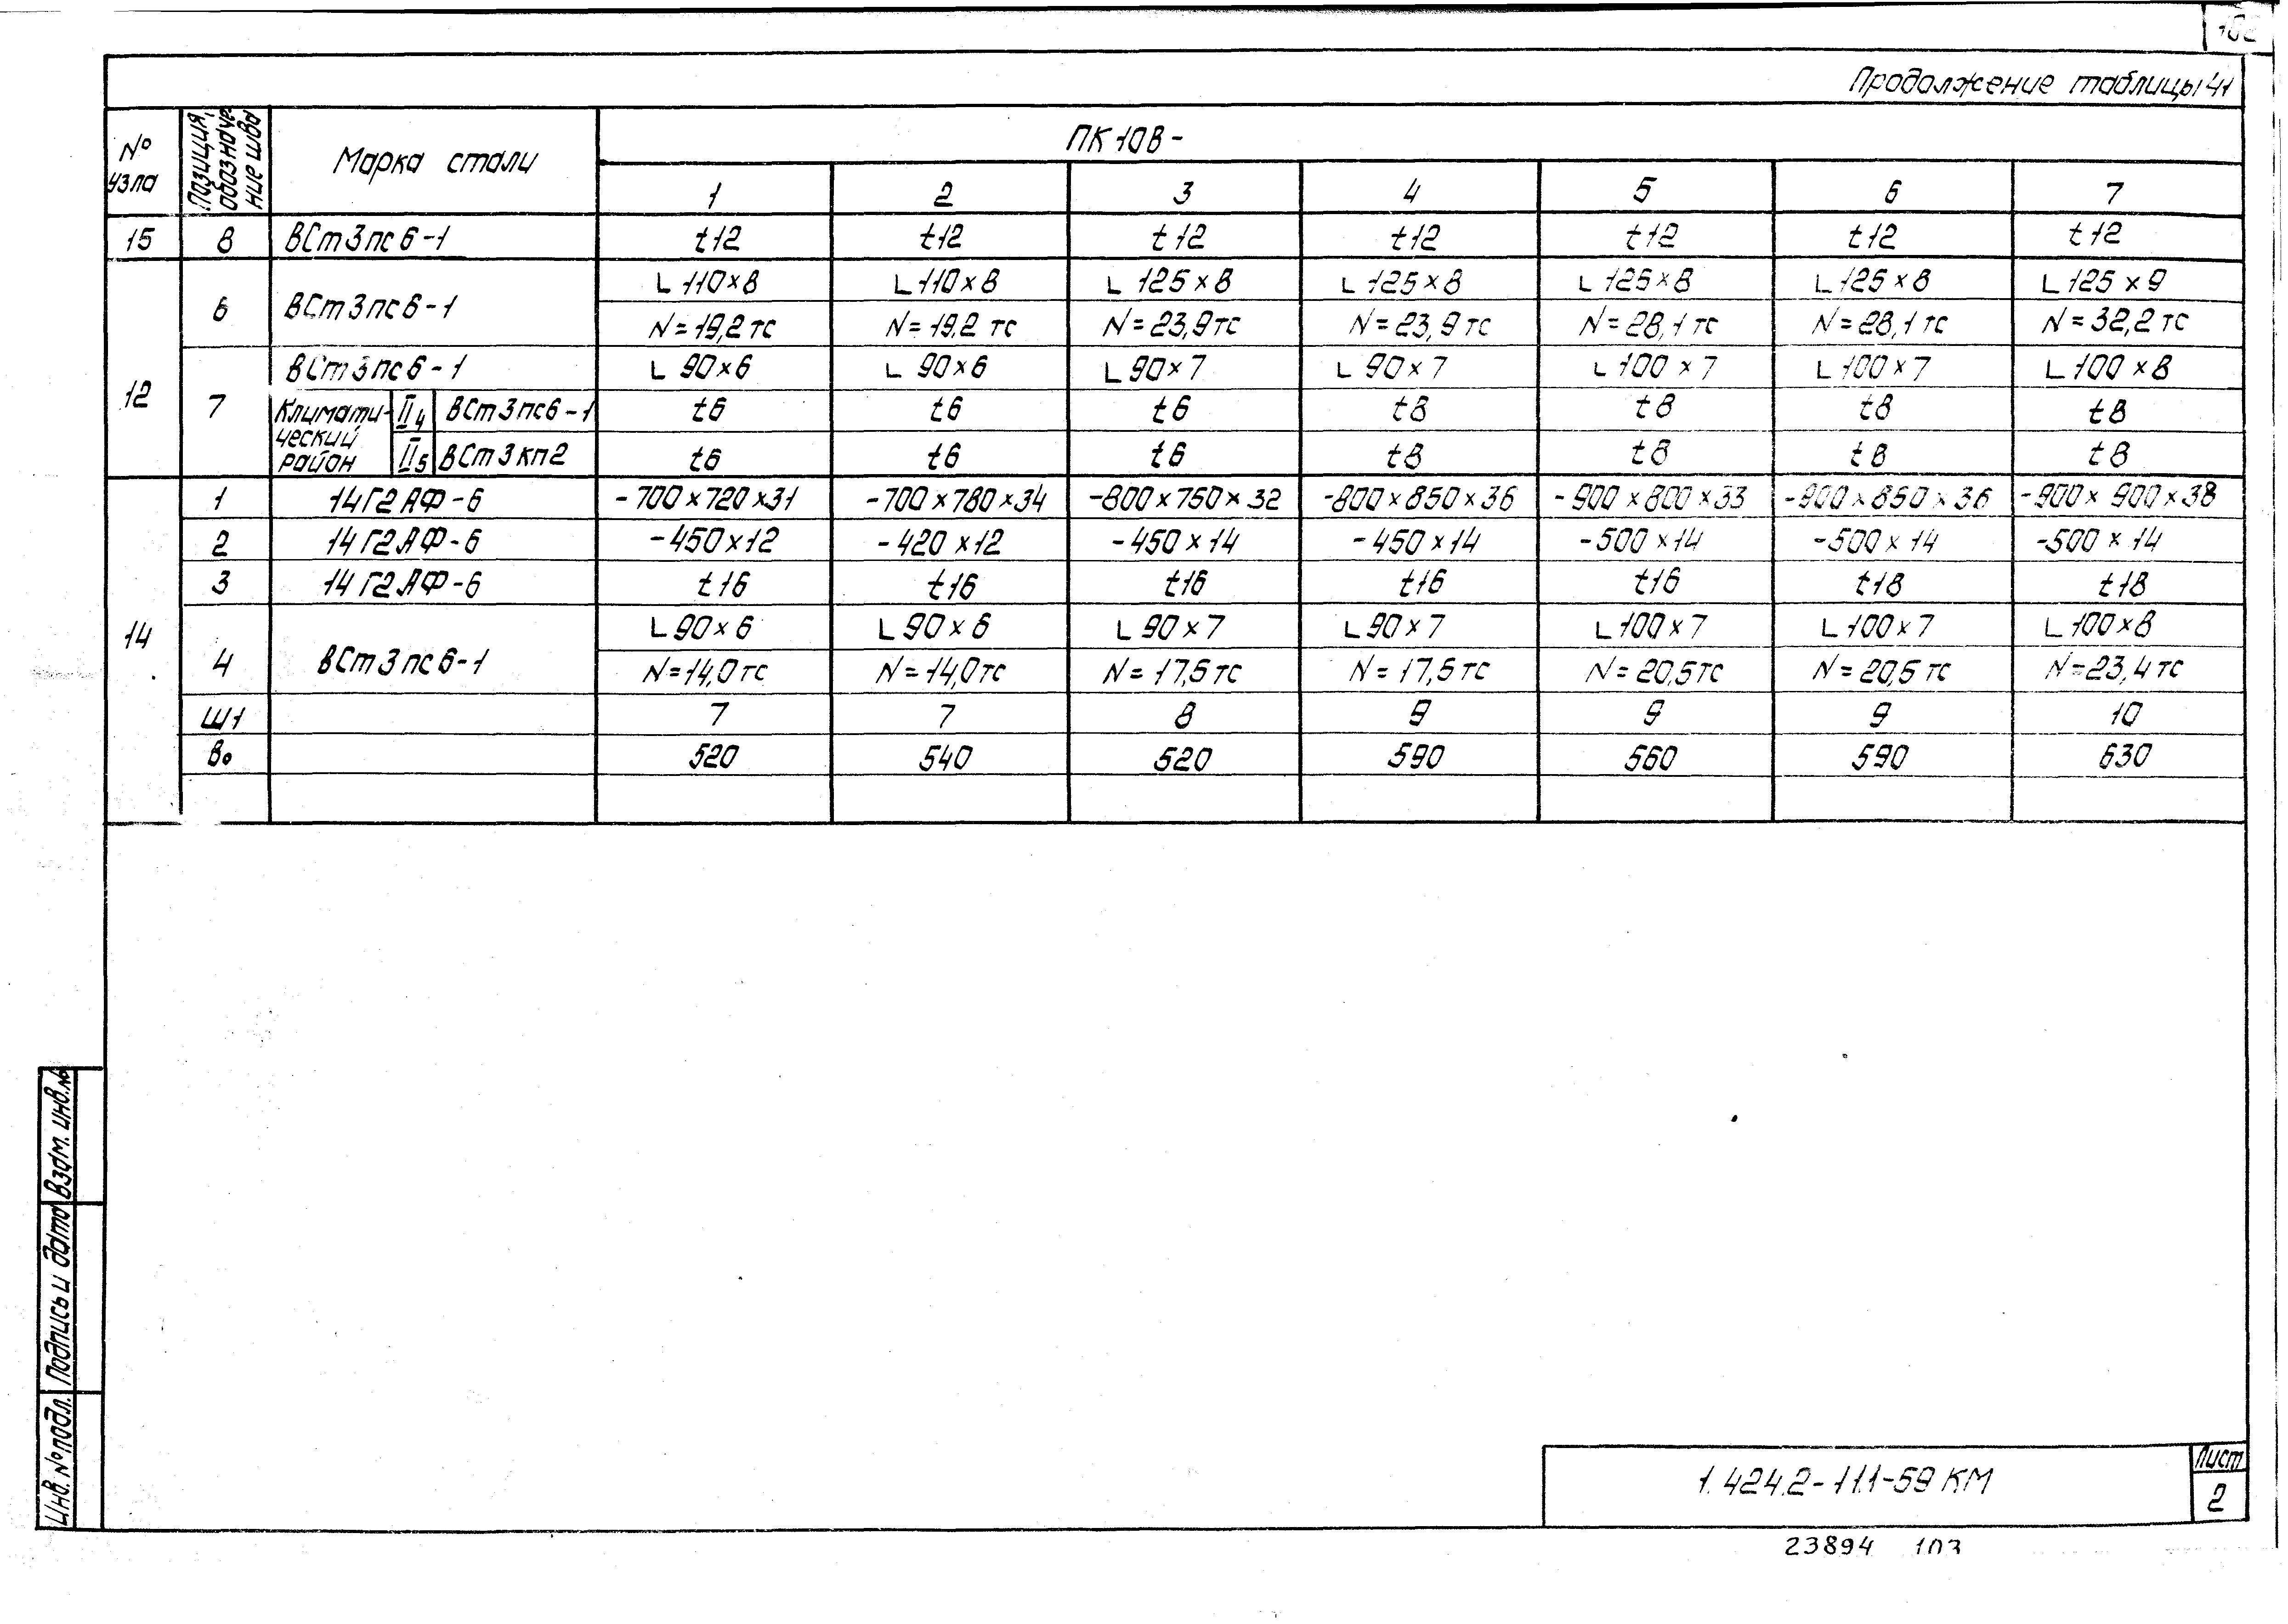 102
Продолжение таблицы 41
№ узла | Позиция, обозначение шва | Марка стали | ПК10В-
1 | 2 | 3 | 4 | 5 | 6 | 7
15 | 8 | ВСт3пс6-1 | t12 | t12 | t12 | t12 | t12 | t12 | t12
12 | 6 | ВСт3пс6-1 | L110×8 | L110×8 | L125×8 | L125×8 | L125×8 | L125×8 | L125×9
N=19,2тс | N=19,2тс | N=23,9тс | N=23,9тс | N=28,1тс | N=28,1тс | N=32,2тс
7 | ВСт3пс6-1 | L90×6 | L90×6 | L90×7 | L90×7 | L100×7 | L100×7 | L100×8
Климатический район | II4 | ВСт3пс6-1 | t6 | t6 | t6 | t8 | t8 | t8 | t8
II5 | ВСт3кп2 | t6 | t6 | t6 | t8 | t8 | t8 | t8
14 | 1 | 14Г2АФ-6 | -700×720×31 | -700×780×34 | -800×750×32 | -800×850×36 | -900×800×33 | -900×850×36 | -900×900×38
2 | 14Г2АФ-6 | -450×12 | -420×12 | -450×14 | -450×14 | -500×14 | -500×14 | -500×14
3 | 14Г2АФ-6 | t16 | t16 | t16 | t16 | t16 | t18 | t18
4 | ВСт3пс6-1 | L90×6 | L90×6 | L90×7 | L90×7 | L100×7 | L100×7 | L100×8
N=14,0тс | N=14,0тс | N=17,5тс | N=17,5тс | N=20,5тс | N=20,5тс | N=23,4тс
Ш1 | 7 | 7 | 8 | 9 | 9 | 9 | 10
в₀ | 520 | 540 | 520 | 590 | 560 | 590 | 630
Взам. инв.№
Подпись и дата
Инв. № подл.
1.424.2-11.1-59 КМ
Лист
2
23894 103